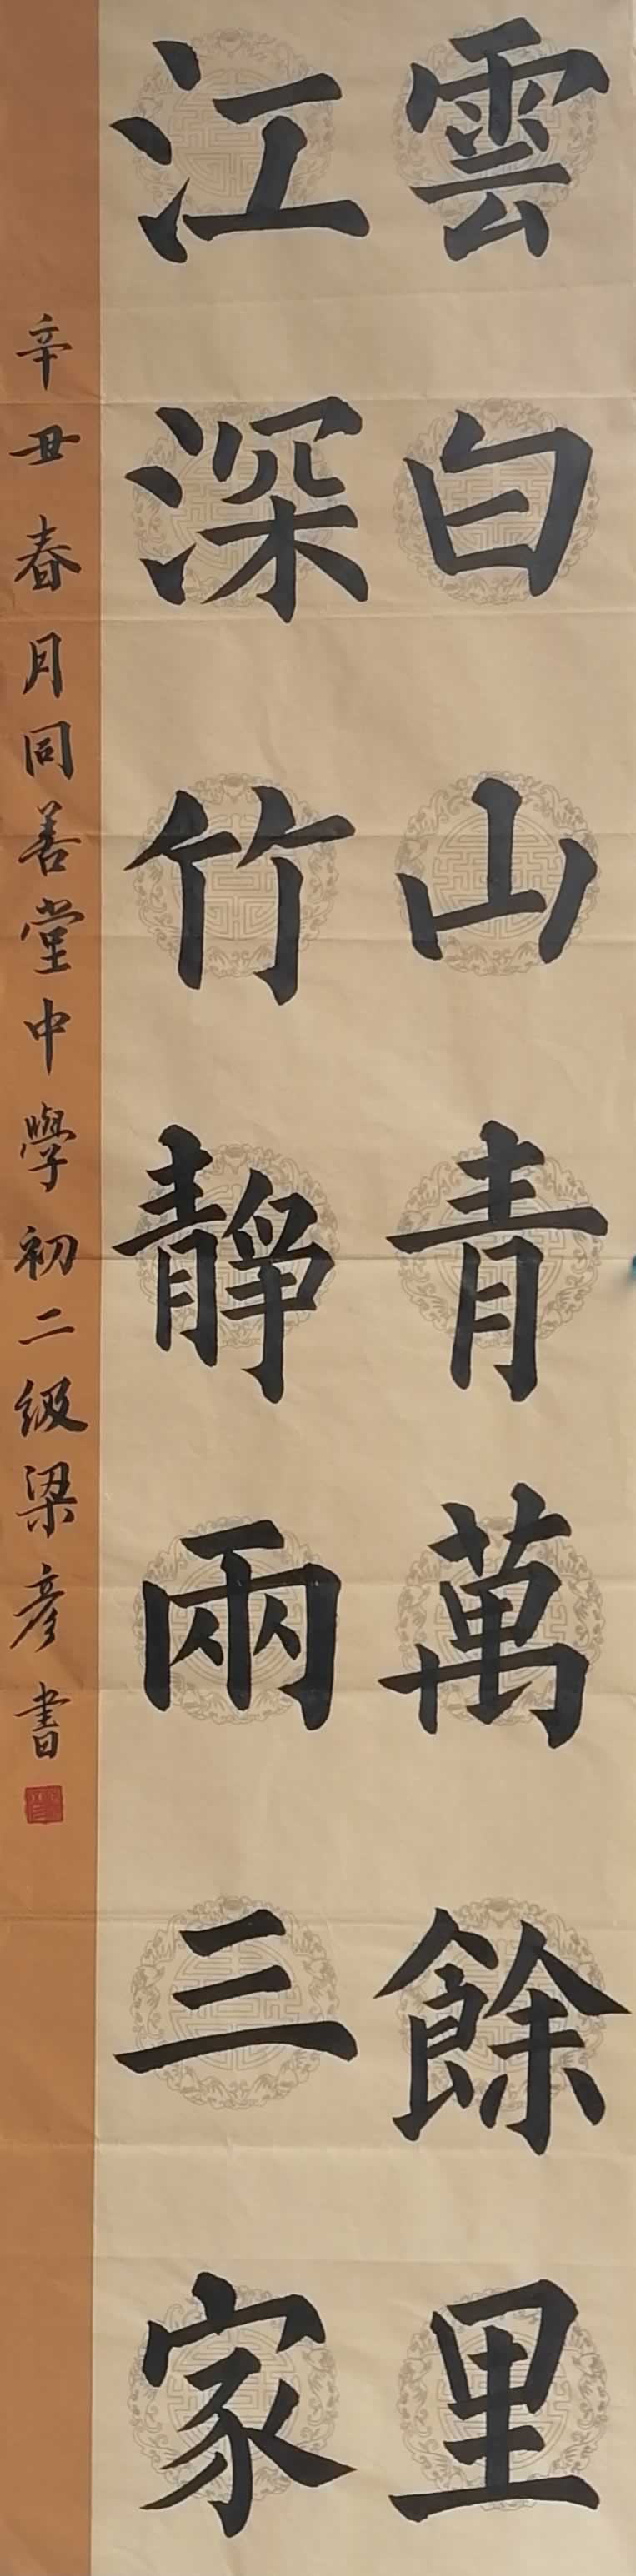 雲白山青萬餘里
江深竹靜兩三家
辛丑春月同善堂中學初二級梁彥書